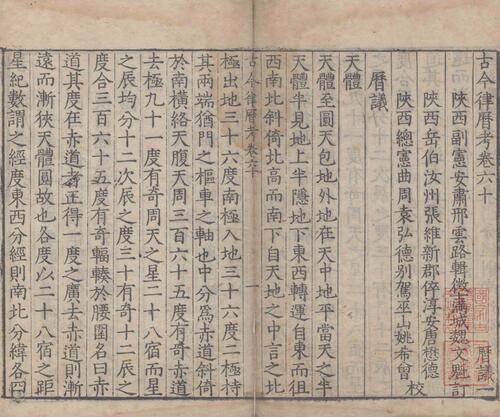 古今律曆考卷六十
曆議一
陝西副憲安肅邢雲路輯 徽滿城魏文魁訂
陝西岳伯汝州張維新 郡倅淳安唐懋德
陝西總憲曲周袁弘德 別駕巫山姚希曾 校
曆議
天體
天體至圓天包地外地在天中地平當天之半
天體半見地上半隱地下東西轉運自東而徂
西南北斜倚北高而南下自天地之中言之北
古今律曆考卷六十 一
極出地三十六度南極入地三十六度二極特
其兩端猶門之樞車之軸也中分爲赤道斜倚
於南橫絡天腹天周三百六十五度有奇赤道
去極九十一度有奇周天之星二十八宿而周天
之辰均分十二次辰之度三十有奇十二辰之
度合三百六十五度有奇輻輳於腰圍名曰赤
道其度在赤道者正得一度之廣去赤道則漸
遠而漸狹天體圓故也各度以二十八宿之距
星紀數謂之經度東西分經則南北分緯各